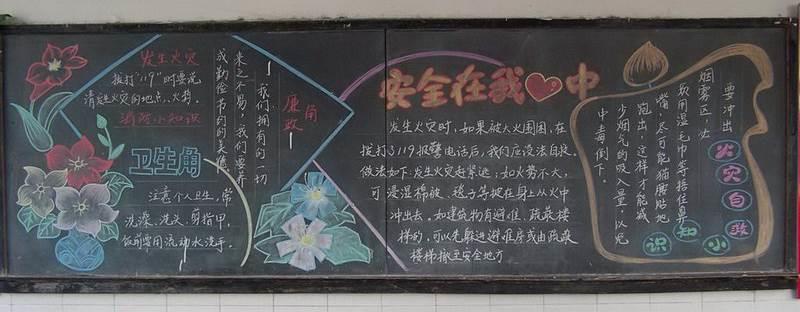 发生火灾
拔打"119"时要说
清发生火灾的地点、火势。
消防小知识
卫生角
注意个人卫生,常
洗澡、洗头、剪指甲,
饭前要用流动水洗手。
廉政角
我们拥有的一切
来之不易,我们要养
成勤俭节约的美德
安全在我❤中
发生火灾时,如果被大火围困,在
拔打119报警电话后,我们应设法自救。
做法如下:发生火灾赶紧逃;如火势不大,
可浸湿棉被、毯子等披在身上从火中
冲出去。如建筑物有避难、疏散楼
梯的,可以先躲进避难层或由疏散
楼梯撤至安全地方
要冲出
烟雾区,必
须用湿毛巾等捂住鼻
嘴,尽可能猫腰贴地
跑出,这样才能减
少烟气的吸入量,以免
中毒倒下。
火灾自救小知识